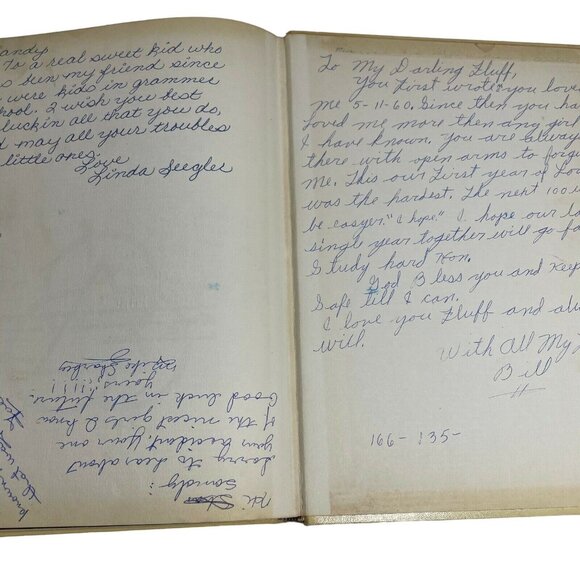 andy
To a real sweet kid who
s been my friend since
were kids in grammer
ool. I wish you best
luckin all that you do,
d may all your troubles
little ones.
Love
Linda Seegles
Hi
Sandy:
Sorry to hear about
your accident, your one
of the nicest girls I know
Good luck in the future.
yours!!!!!
Mike
known
that
To My Darling Fluff,
You first wrote you loved
me "5-11-60. Since then you ha
loved me more then any girl
I have known. You are alway
there with open arms to forgi
Me. This our first year of Lov
was the hardest. The next 100 w
be easyer "I hope." I hope our la
single year together will go fa
Study hard Hon.
God Bless you and keep
Safe till I can.
I love you Fluff and alw
will.
With All My
Bill
166-135-